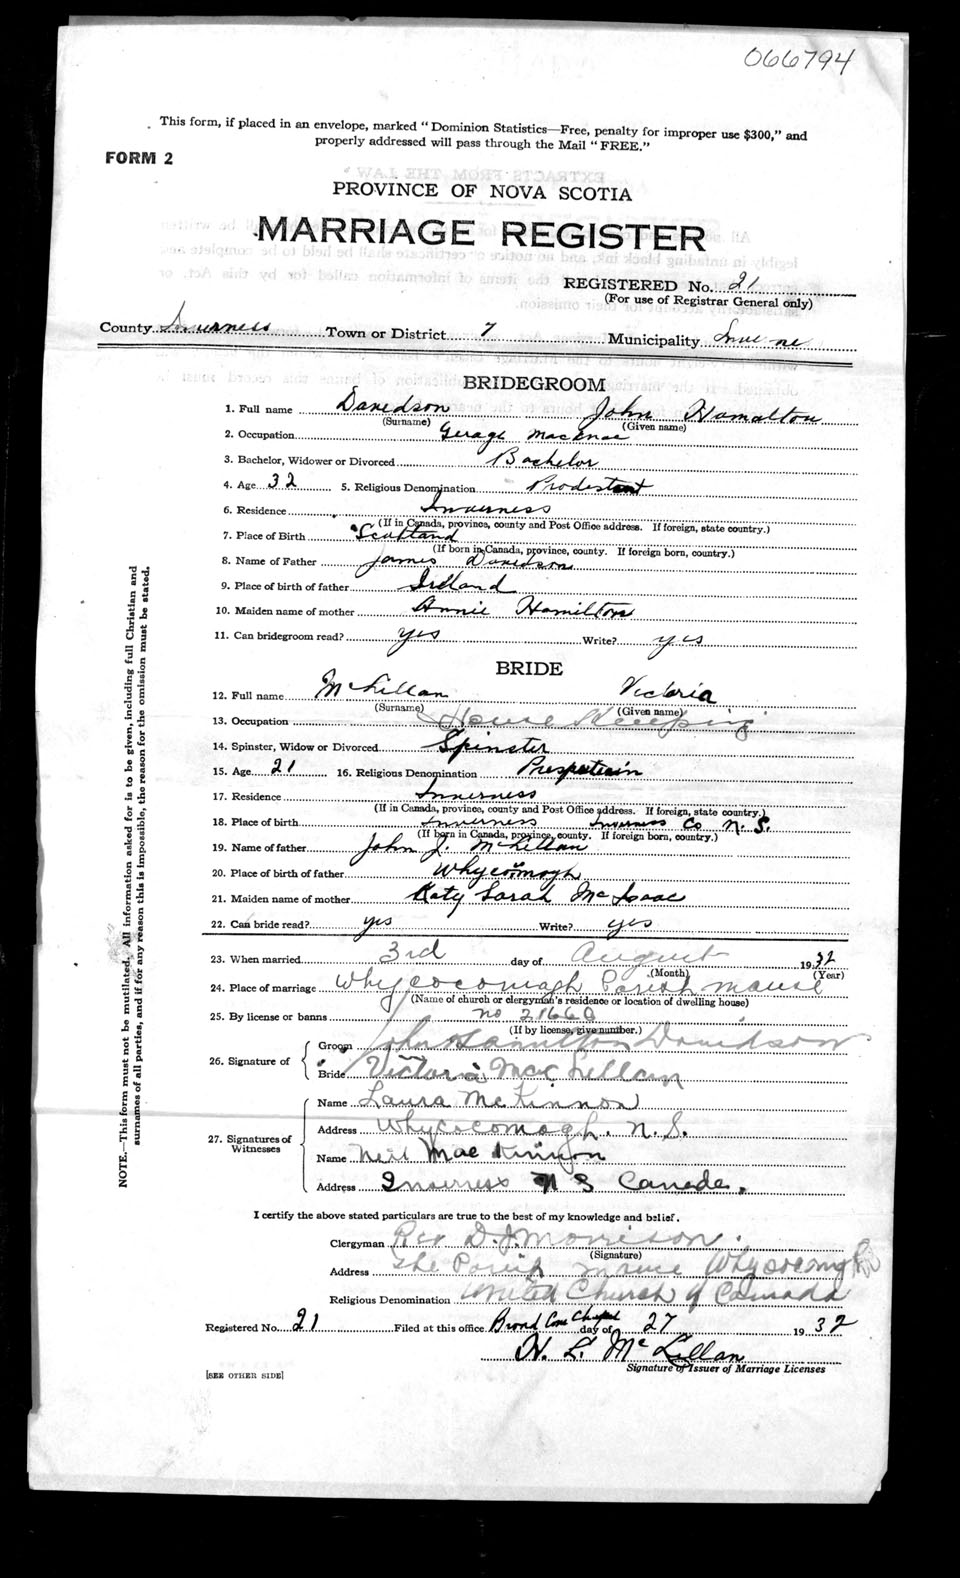 066794
This form, if placed in an envelope, marked "Dominion Statistics—Free, penalty for improper use $300," and
properly addressed will pass through the Mail "FREE."
FORM 2
PROVINCE OF NOVA SCOTIA
MARRIAGE REGISTER
REGISTERED No. 21
(For use of Registrar General only)
County Inverness Town or District 7 Municipality
BRIDEGROOM
1. Full name Davidson John Hamalton
(Surname) (Given name)
2. Occupation Gerage
3. Bachelor, Widower or Divorced Bachelor
4. Age 32 5. Religious Denomination Prodestant
6. Residence Inverness
(If in Canada, province, county and Post Office address. If foreign, state country.)
7. Place of Birth Scotland
(If born in Canada, province, county. If foreign born, country.)
8. Name of Father James Davidson
9. Place of birth of father Irlland
10. Maiden name of mother Annie Hamilton
11. Can bridegroom read? yes Write? yes
BRIDE
12. Full name McLellan Victoria
(Surname) (Given name)
13. Occupation House Keeping
14. Spinster, Widow or Divorced Spinster
15. Age 21 16. Religious Denomination
17. Residence Inverness
(If in Canada, province, county and Post Office address. If foreign, state country.)
18. Place of birth Inverness Inverness Co N. S.
(If born in Canada, province, county. If foreign born, country.)
19. Name of father John J. McLellan
20. Place of birth of father
21. Maiden name of mother Katy Sarah McIsaac
22. Can bride read? yes Write? yes
23. When married 3rd day of August 1932
(Month) (Year)
24. Place of marriage Whycocomagh Parish manse
(Name of church or clergyman's residence or location of dwelling house)
25. By license or banns no 21660
(If by license, give number.)
26. Signature of
Groom John Hamilton Davidson
Bride Victoria MacLellan
27. Signatures of Witnesses
Name Laura McKinnon
Address Whycocomagh. N.S.
Name Neil MacKinnon
Address Inverness N S Canada.
I certify the above stated particulars are true to the best of my knowledge and belief.
Clergyman Rev D.J. Morrison.
(Signature)
Address The Parish manse Whycocomagh
Religious Denomination United Church of Canada
Registered No. 21 Filed at this office Broad Cove Chapel day of 27 1932
H. L. McLellan
Signature of Issuer of Marriage Licenses
[SEE OTHER SIDE]
NOTE.—This form must not be mutilated. All information asked for is to be given, including full Christian and
surnames of all parties, and if for any reason this is impossible, the reason for the omission must be stated.